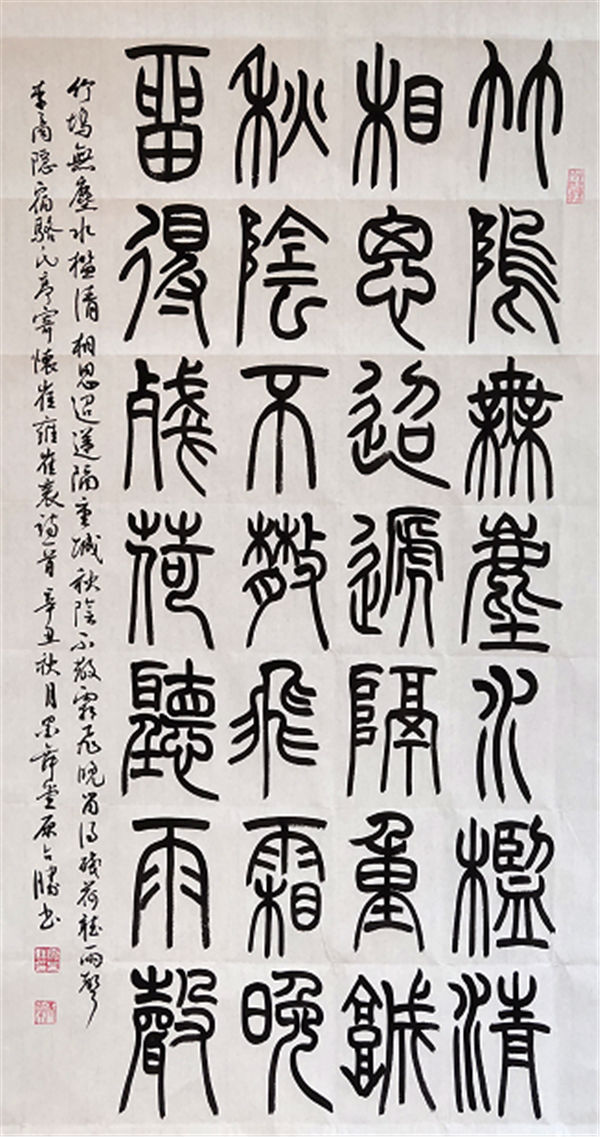 竹隖無塵水檻清
相思迢遞隔重城
秋陰不散飛霜晚
留得殘荷聽雨聲
竹塢無塵水檻清相思迢遞隔重城秋陰不散霜飛晚留得殘荷聽雨聲
李商隱宿駱氏亭寄懷崔雍崔袞詩一首辛丑秋月墨堂書